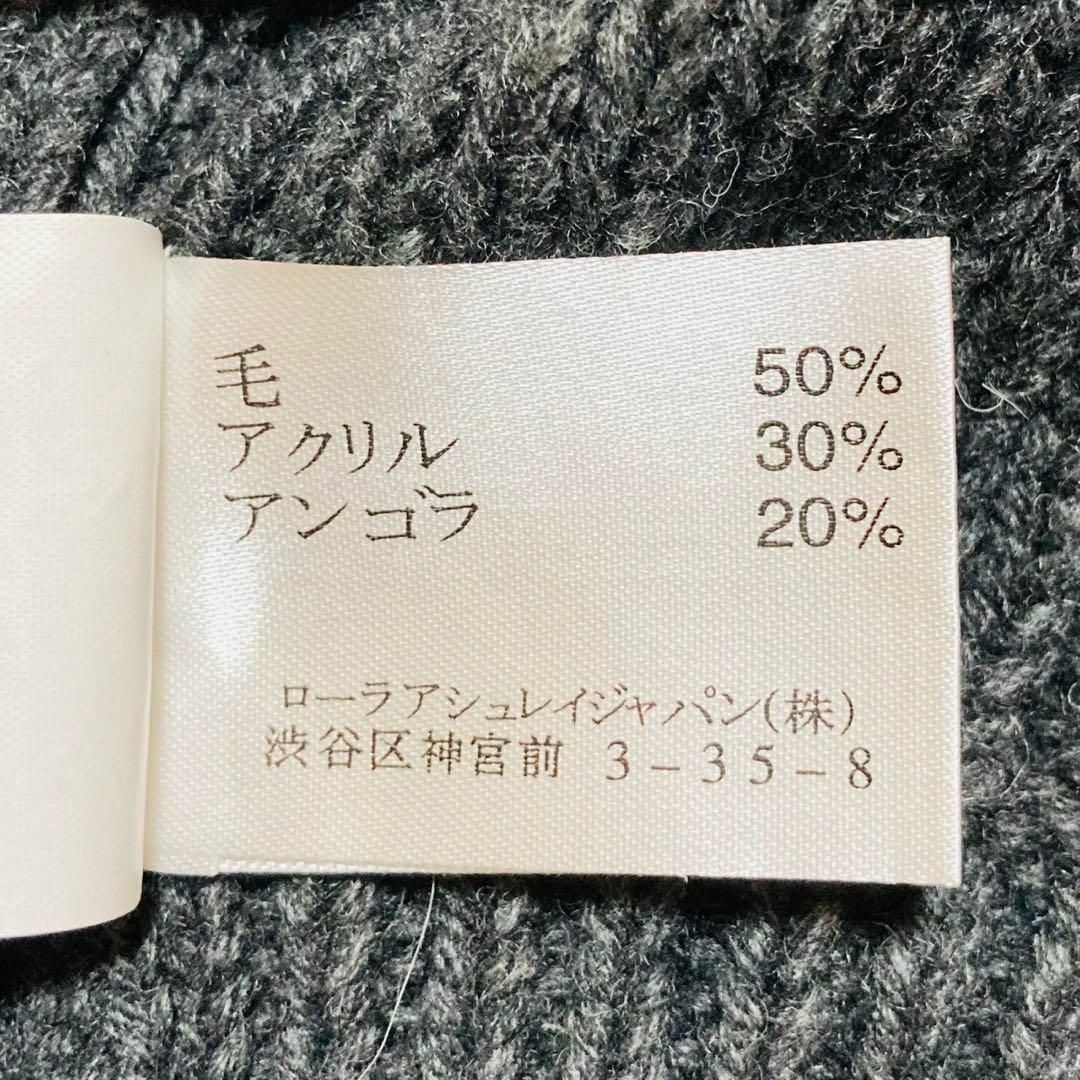 毛 50%
アクリル 30%
アンゴラ 20%
ローラアシュレイジャパン(株)
渋谷区神宮前 3-35-8